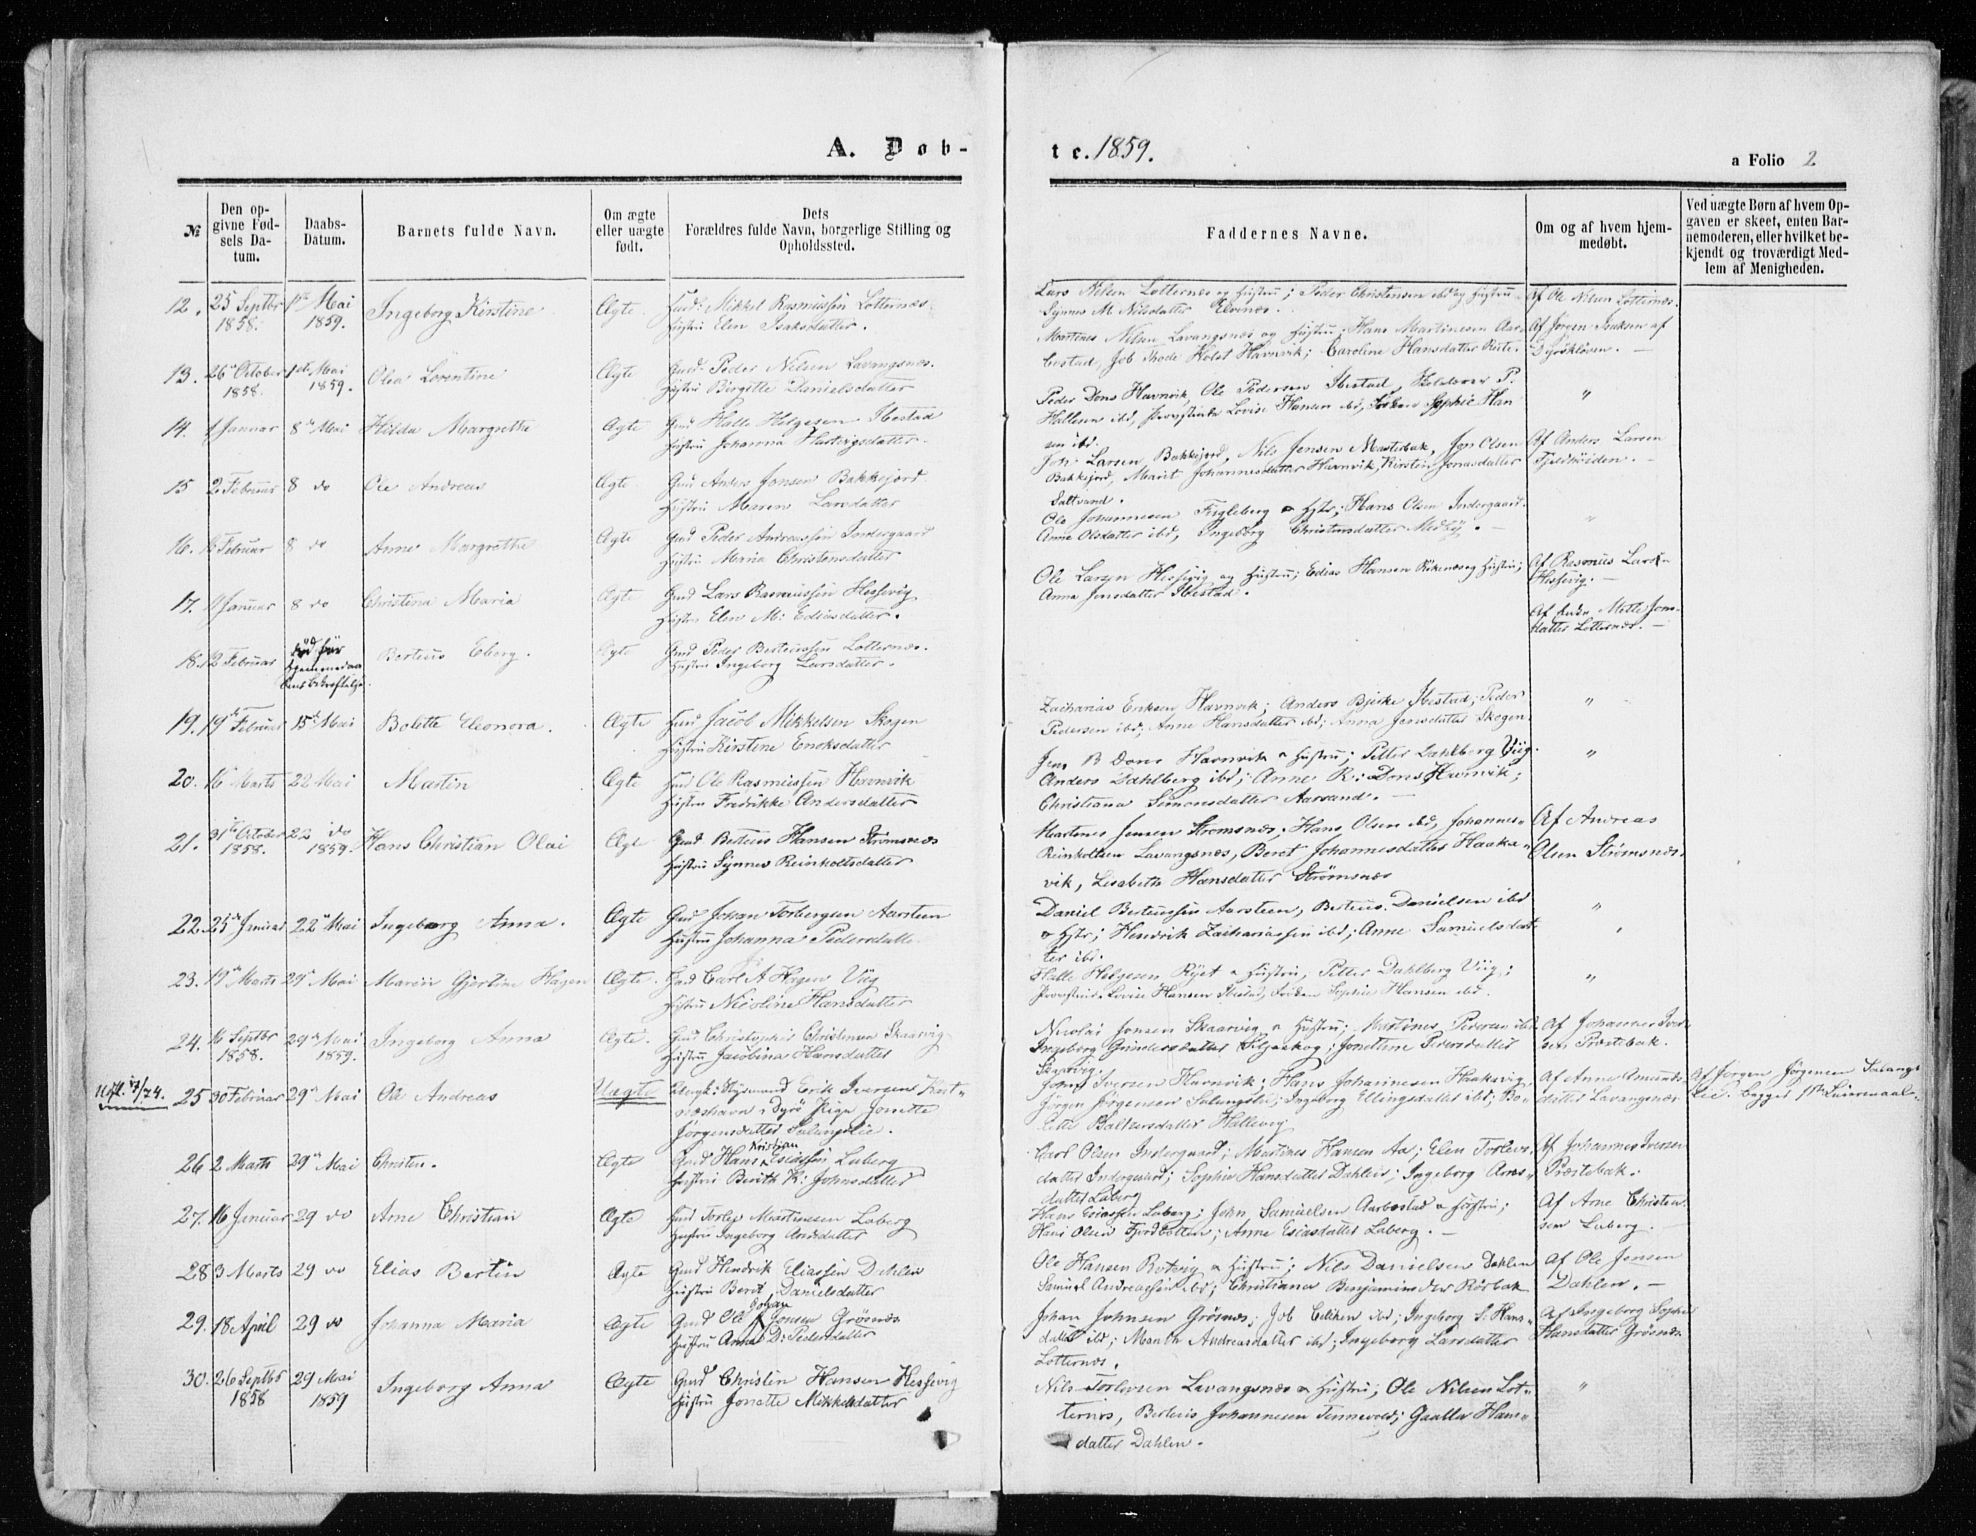 A. Døb-
te. 1859.
a Folio 2
№
Den op-
givne Fød-
sels Da-
tum.
Daabs-
Datum.
Barnets fulde Navn.
Om ægte
eller uægte
født.
Dets
Forældres fulde Navn, borgerlige Stilling og
Opholdssted.
Faddernes Navne.
Om og af hvem hjem-
medøbt.
Ved uægte Børn af hvem Op-
gaven er skeet, enten Bar-
nemoderen, eller hvilket be-
kjendt og troværdigt Med-
lem af Menigheden.
12. 25 Septbr 1858. 1ste Mai 1859. Ingeborg Kirstine Ægte
Gmd. Mikkel Rasmussen Lotternæs.
Hustru Elen Isaksdatter.
Lars Nilsen Lotternæs og Hustru; Peder Christensen ibd og Hustru
Synnev M. Nilsdatter Elvenæs.
Af Ole Nilsen Lotternæs.
13. 26 October 1858. 1ste Mai 1859. Olea Lorentine Ægte
Gmd. Peder Nilsen Lavangsnæs.
Hustru Birgitte Danielsdatter
Martines Nilsen Lavangsnæs og Hustru; Hans Martinesen Aar-
bostad, Job Holst Havnvik; Caroline Hansdatter
Af Jørgen Isaksen af
Dyrskløven.
14. 4 Januar 8 Mai Hilda Margrethe Ægte
Gmd Halle Helgesen Ibestad
Hustru Johanna Hartvigsdatter.
Peder Dons Havnvik, Ole Pedersen Ibestad, P.
Hallesen ibd, Lovise Hansen ibd, Sophie Han
sen ibd.
"
15 2 Februar 8 do Ole Andreas Ægte
Gmd Anders Jonsen Bakkejord
Hustru Maren Larsdatter
Joh. Larsen Bakkejord, Nils Jensen Mastebak, Jon Olsen
Bakkejord, Marit Johannesdatter Havnvik, Kirsten Jonasdatter
Saltvand.
Af Anders Larsen
16. Februar 8 do Anne Margrethe Ægte
Gmd Peder Andreassen Indergaard
Hustru Maria Christensdatter
Ole Johannesen Fugleberg & Hstr; Hans Olsen Indergaard.
Anne Olsdatter ibd, Ingeborg Christensdatter Medby.
"
17. Januar 8 do Christina Maria Ægte
Gmd Lars Rasmussen Hessevig
Hustru Elen M: Ediasdatter.
Ole Larsen Hessevig og Hustru; Edias Hansen og Hustru;
Anna Jensdatter Ibestad.
Af Rasmus Larsen
Hessevig.
18. 12 Februar Berteus Eberg. Ægte
Gmd Peder Berteussen Lotternæs.
Hustru Ingeborg Larsdatter.
Af Enke Mette Jons-
datter Lotternæs.
19. 19de Februar 15de Mai Bolette Eleonora. Ægte
Gmd Jacob Mikkelsen Skogen
Hustru Kirstine Enoksdatter
Zacharias Eriksen Havnvik; Anders Bjerke Ibestad; Peder
Pedersen ibd; Anne Hansdatter ibd; Anna Jensdatter Skogen
"
20. 16 Marts 22 Mai Martin Ægte
Gmd Ole Rasmussen Havnvik
Hustru Fredrikke Andersdatter
Jens B Dons Havnvik & Hustru; Petter Dahlberg Viig.
Anders Dahlberg ibd; Anne R: Dons Havnvik;
Christiana Simonsdatter Aarsand.
"
21. 31te October 1858. 22 do 1859. Hans Christian Olai Ægte
Gmd Berteus Hansen Strømsnæs
Hustru Synnev Reinholtsdatter
Martines Jensen Strømsnæs, Hans Olsen ibd, Johannes
Reinholtsen Lavangsnæs, Beret Johannesdatter Haaka-
vik, Lisabeth Hansdatter Strømsnæs
Af Andreas
Olsen Strømsnæs.
22. 25de Januar 22 Mai Ingeborg Anna. Ægte
Gmd Johan Torbergsen Aarsteen
Hustru Johanna Pedersdatter
Daniel Berteussen Aarsteen, Berteus Danielsen ibd
& Hstr; Hendrik Zachariassen ibd; Anne Samuelsdat-
ter ibd.
"
23. 19de Marts 29 Mai Maren Gjertine Hagen Ægte.
Gmd Carl A Hagen Viig
Hustru Nicoline Hansdatter
Halle Helgesen Røjet & Hustru, Petter Dahlberg Viig;
Lovise Hansen Ibestad, Sophie Hansen ibd.
"
24. 16 Septbr 1858. 29de Mai 1859. Ingeborg Anna Ægte.
Gmd Christopher Christensen Skaarvig
Hustru Jacobina Hansdatter
Nicolai Jonsen Skaarvig & Hustru; Martines Pedersen ibd.
Ingeborg Gundersdatter Seljeskog; Jonettine Pedersdatter
Skaarvig.
Af Johannes Iver-
sen Præstebak.
25 30 Februar 29 Mai Ole Andreas Uægte
Erik Iversen Kast-
næshavn i Dyrø Pige Jonette
Jørgensdatter Salangslie.
Johan Iversen Havnvik; Hans Johannesen Haakavig
Jørgen Jørgensen Salangslie; Ingeborg Ellingsdatter ibd; Bo-
lette Baltzersdatter Hallevig
Af Anne Amunds-
datter Lavangsnæs
Af Jørgen Jørgensen Salangs-
lie. begges 1ste Leiermaal.
26 2 Marts 29 Mai Christen. Ægte
Gmd Hans Kristian Esiassen Laberg
Hustru Berith K: Johnsdatter
Carl Olsen Indergaard; Martines Hansen Aa; Elen Torlevs-
datter Indergaard; Sophie Hansdatter Dahlen; Ingeborg Arns-
datter Laberg
Af Johannes Iversen
Præstebak.
27. 16 Januar 29 do Arne Christian Ægte
Gmd Torlej Martinesen Laberg
Hustru Ingeborg Arnsdatter
Hans Esiassen Laberg; John Samuelsen Aarbostad & Hustru;
Hans Olsen Fjordbotten; Anne Esiasdatter Laberg.
Af Arne Christen-
sen Laberg.
28 3 Marts 29 do Elias Bertin Ægte
Gmd Hendrik Eliassen Dahlen
Hustru Beret Danielsdatter
Ole Hansen Rotvig & Hustru; Nils Danielsen Dahlen
Samuel Andreassen ibd; Christiana Benjaminsdtr Rørbak
Af Ole Jensen
Dahlen.
29. 18 April 29 do Johanna Maria Ægte
Gmd Ole Johan Jonsen Grøsnæs
Hustru Anna D: Pedersdatter
Johan Johnsen Grøsnæs; Job ibd; Ingeborg S. Hans-
datter ibd; Andreasdatter ibd; Ingeborg Larsdatter
Lotternæs.
Af Ingeborg Sophie
Hansdatter Grøsnæs
30. 26 Septbr 1858 29 Mai 1859 Ingeborg Anna Ægte
Gmd Christen Hansen Hessevig
Hustru Jonette Mikkelsdatter
Nils Torlevsen Lavangsnæs & Hustru; Ole Nilsen Lot-
ternæs, Berteus Johannesen Tennevold; Hans-
datter Dahlen.
"